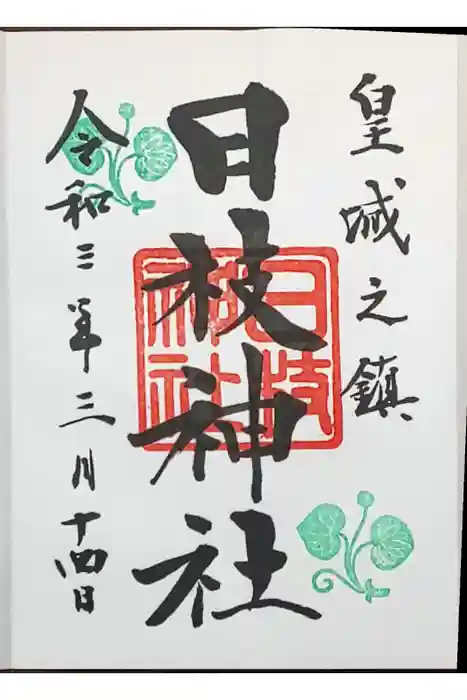 皇城之鎮
日枝神社
日枝神社
令和三年三月十四日